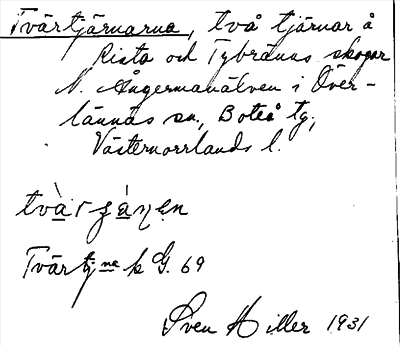 Tvärtjärnarna, två tjärnar å
Rista och Tybränns skogar
N. Ångermanälven i Över-
lännäs sn., Boteå tg,
Västernorrlands l.
Tvärtjna k G. 69
Sven Hiller 1931